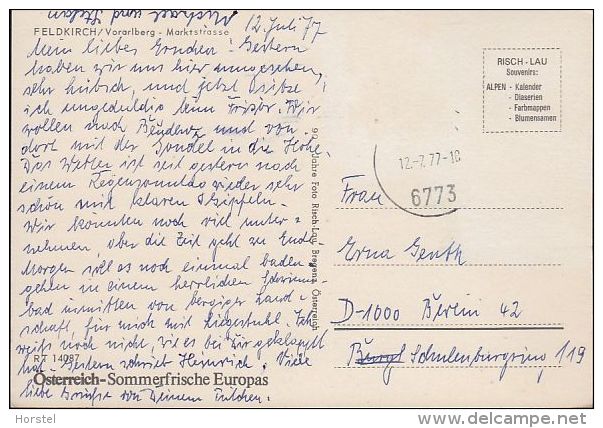 Michael und Stefan
12. Juli 77
FELDKIRCH/Vorarlberg - Marktstrasse
Mein liebes! Gestern
haben wir uns hier umgesehen,
sehr hübsch, und jetzt sitze
ich ungeduldig beim Frisör. Wir
wollen nach und von
dort mit der Gondel in die Höhe.
Das Wetter ist seit gestern nach
einem Regensonntag wieder sehr
schön mit klaren Gipfeln.
Wir könnten noch viel unter-
nehmen, aber die Zeit geht zu Ende.
Morgen soll es noch einmal baden
gehen in einem herrlichen Schwimm-
bad inmitten von bergiger Land-
schaft, für mich mit Liegestuhl. Ich
weiß noch nicht, wie es bei Dir geklappt
RT 14087
hat. Gestern schrieb Heinrich. Viele
Österreich-Sommerfrische Europas
liebe Grüße von Deinem
90 Jahre Foto Risch-Lau, Bregenz, Österreich
RISCH-LAU
Souvenirs:
ALPEN - Kalender
- Diaserien
- Farbmappen
- Blumensamen
12.-7.77-18
6773
Frau
Erna Genth
D-1000 Berlin 42
Schulenburgring 119
Horstel
www.delcampe.net